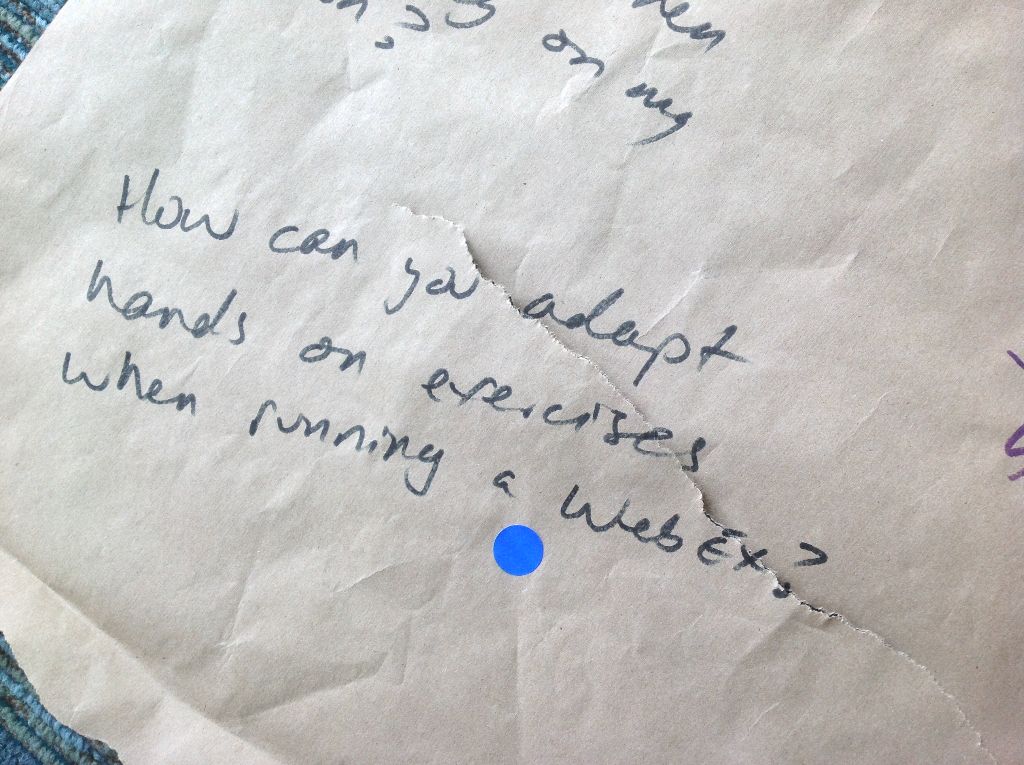 on my
How can you adapt
hands on exercises
when running a WebEx?